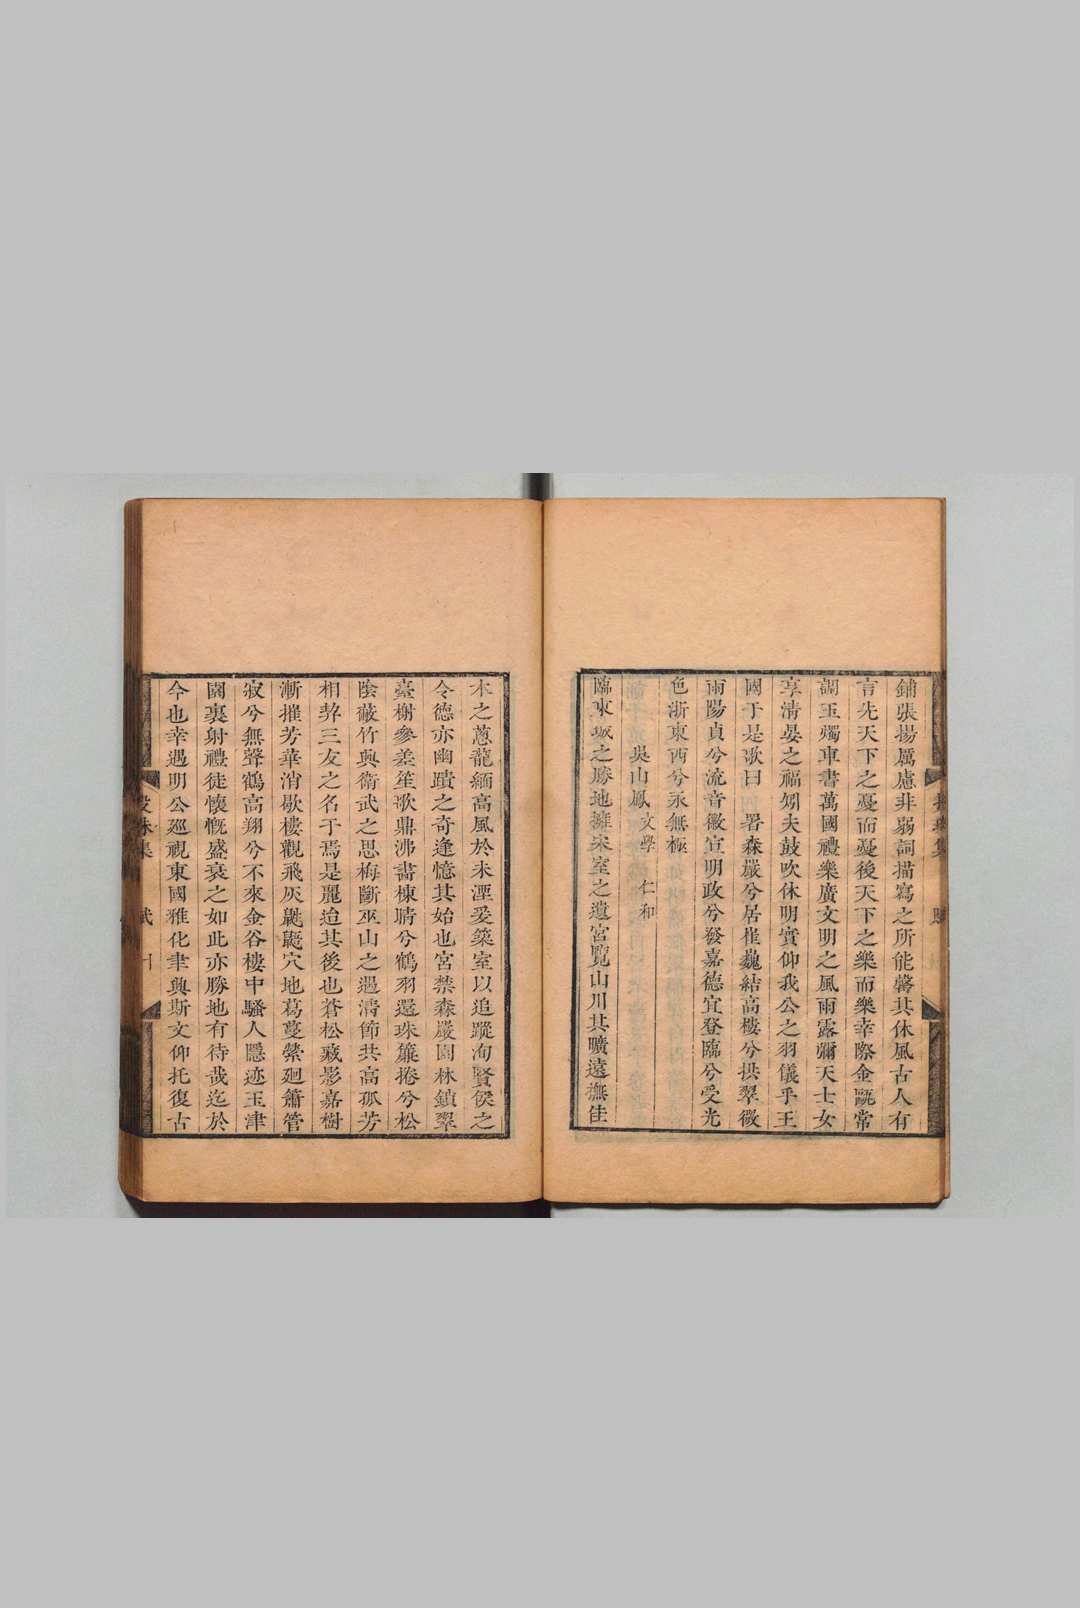 鋪張揚厲慮菲弱詞描寫之所能罄其休風古人有
言先天下之憂而憂後天下之樂而樂幸際金甌常
調玉燭車書萬國禮樂廣文明之風雨露彌天士女
享清晏之福矧夫鼓吹休明實仰我公之羽儀乎王
國于是歌曰署森嚴兮居崔巍結高樓兮拱翠微
雨陽貞兮流音徽宣明政兮發嘉德宜登臨兮受光
色浙東西兮永無極
吳山鳳 文學 仁和
臨東城之勝地擁宋室之遺宮覽山川其曠遠撫佳
木之蔥蘢緬高風於未湮爰築室以追蹤洵賢侯之
令德亦幽蹟之奇逢憶其始也宮禁森嚴園林鎮翠
臺榭參差笙歌鼎沸書棟晴兮鶴羽還珠簾捲兮松
陰蔽竹興衛武之思梅斷巫山之遇清節共高孤芳
相契三友之名于焉是麗迨其後也蒼松藏影嘉樹
漸摧芳華消歇樓觀飛灰鼪鼯穴地葛蔓縈廻簫管
寂兮無聲鶴高翔兮不來金谷樓中騷人隱迹玉津
園裏射禮徒懷慨盛衰之如此亦勝地有待哉迄於
今也幸遇明公廵視東國雅化聿興斯文仰托復古
集 賦